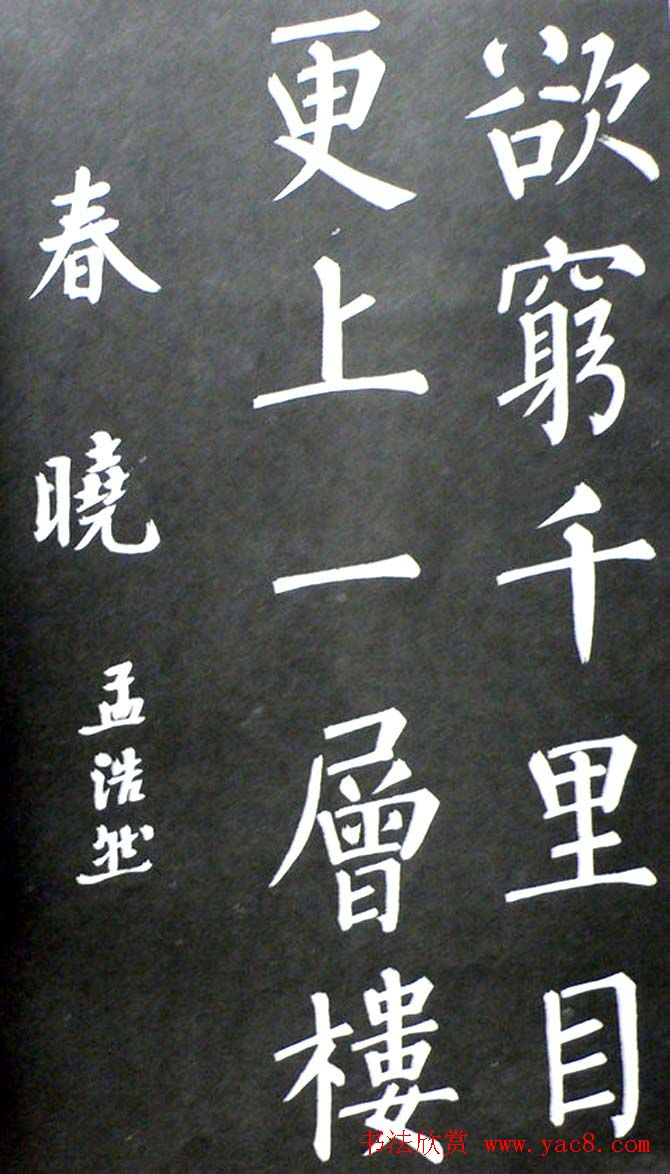 欲窮千里目
更上一層樓
春曉
孟浩然
书法欣赏 www.yac8.com